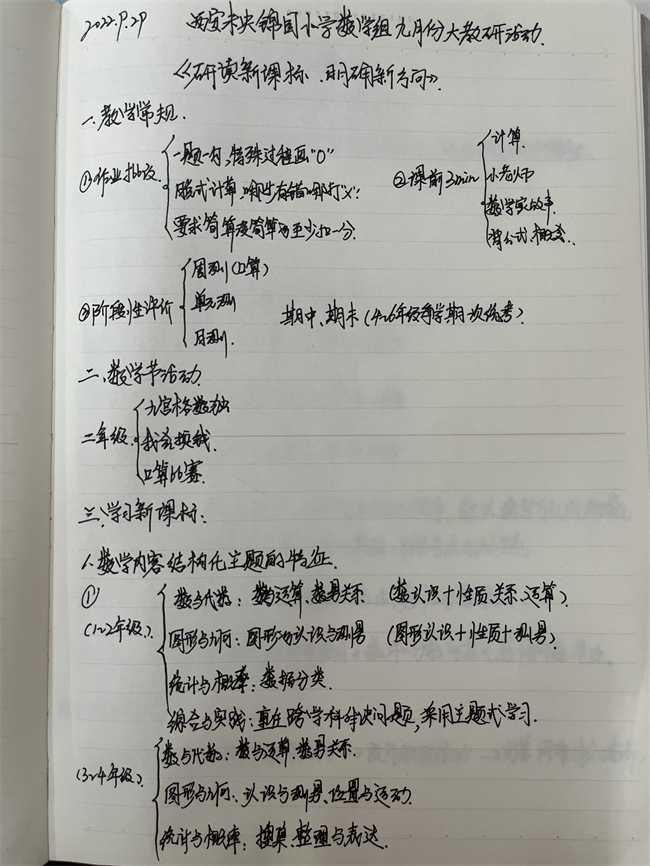 2022.9.29 西安未央锦园小学数学组九月份大教研活动.
《研读新课标、明确新方向》.
一、教学常规.
①作业批改
一题一勾, 错殊过程画"O"
脱式计算, 哪步有错哪打"×".
要求简算没简算的至少扣一分.
②课前3min
计算.
小老师
数学家故事.
背公式、概念.
③阶段性评价
周测(口算)
单元测
月测.
期中、期末(4~6年级每学期一次统考).
二、数学节活动
二年级.
九宫格数独
我会换钱.
口算比赛.
三、学习新课标:
1.数学内容结构化主题的特征.
①
(1~2年级).
数与代数: 数与运算、数量关系 (数认识+性质、关系、运算).
图形与几何: 图形的认识与测量 (图形认识+性质+测量)
统计与概率: 数据分类.
综合与实践: 重在跨学科解决问题, 采用主题式学习.
(3~4年级).
数与代数: 数与运算、数量关系.
图形与几何: 认识与测量、位置与运动.
统计与概率: 搜集、整理与表达.